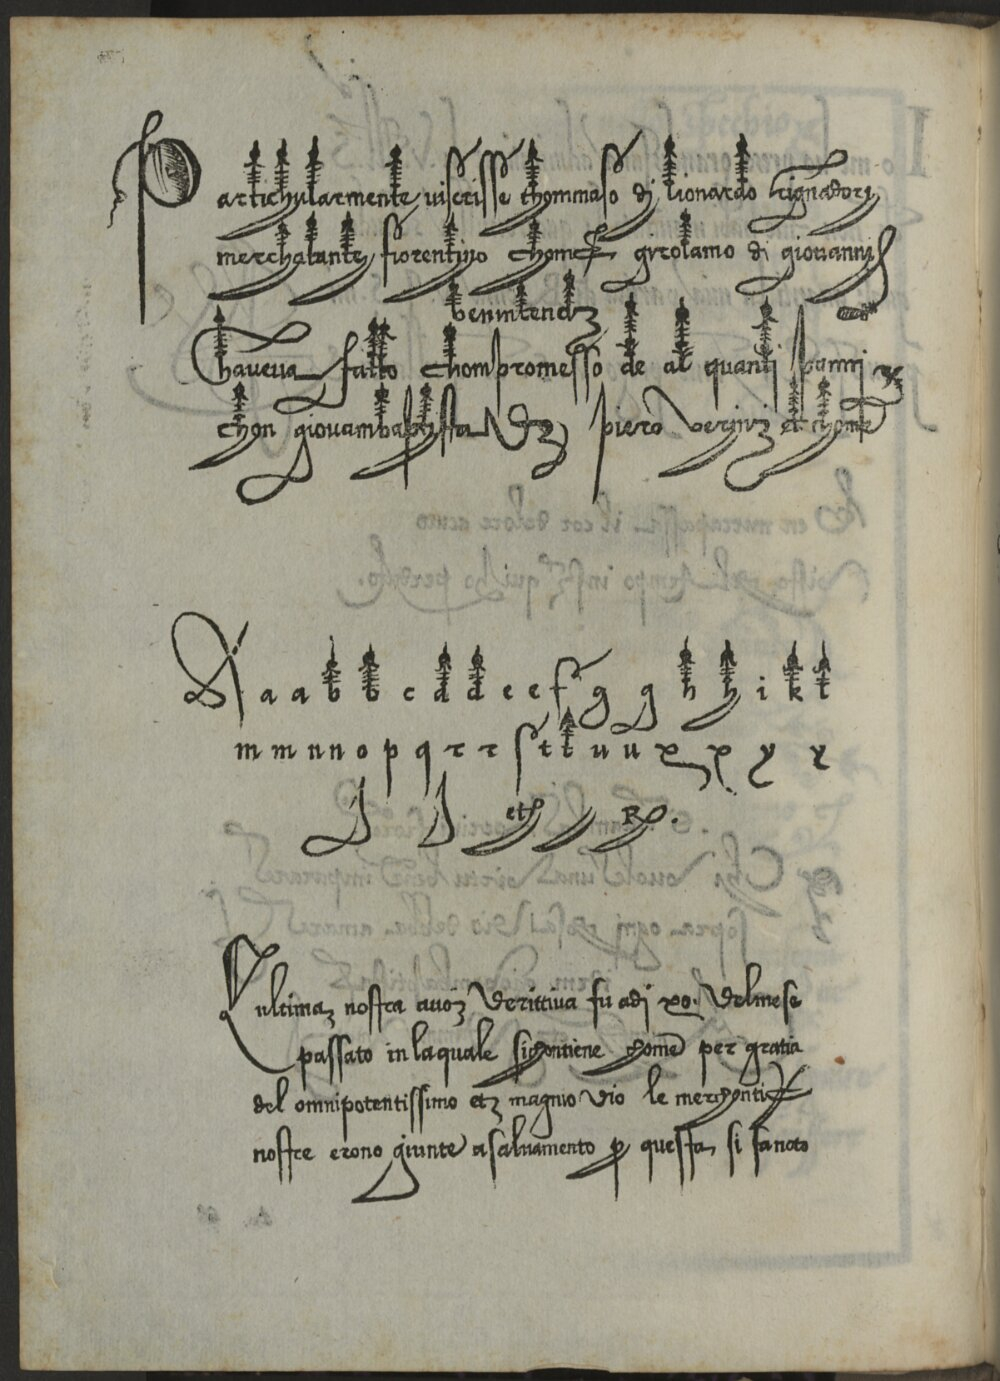 Partichularmente viscrisse thommaso di lionardo rignadori
merchatante fiorentino chome girolamo di giovanni
benintendi
Chaveva fatto chompromesso de al quanti panni
chon giovambaptista Di piero verini et chome
A a a b b c d d e e f g g h h i k l
m m n n o p q r r s t t u u x x y y
et R.
Lultima nostra avoi Derittiva fu adi xv. Delmese
passato in laquale sichontiene chome per gratia
del omnipotentissimo et magnio Dio le merchantie
nostre erono giunte asalvamento p questa si fanoto